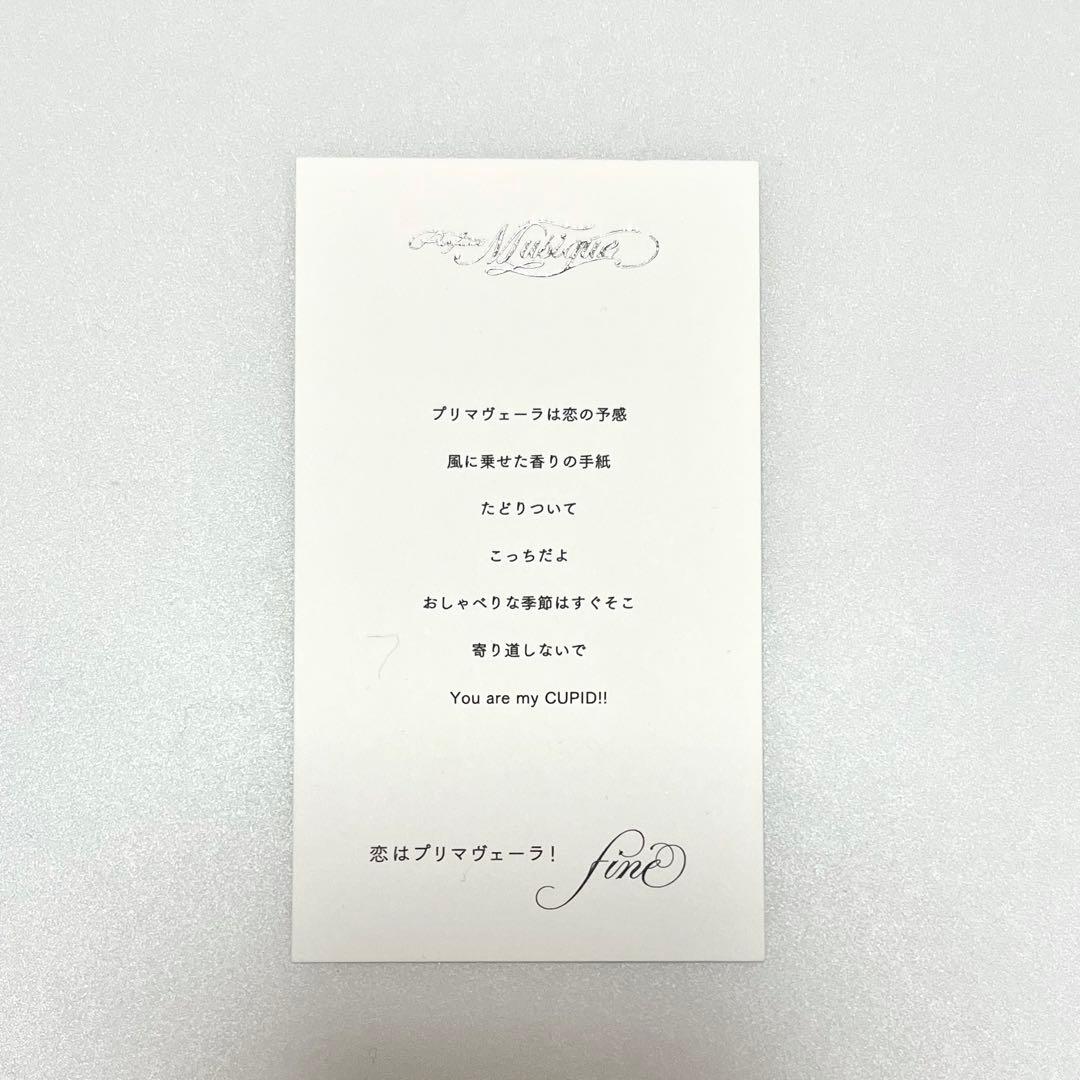 Musique
プリマヴェーラは恋の予感
風に乗せた香りの手紙
たどりついて
こっちだよ
おしゃべりな季節はすぐそこ
寄り道しないで
You are my CUPID!!
恋はプリマヴェーラ!
fine